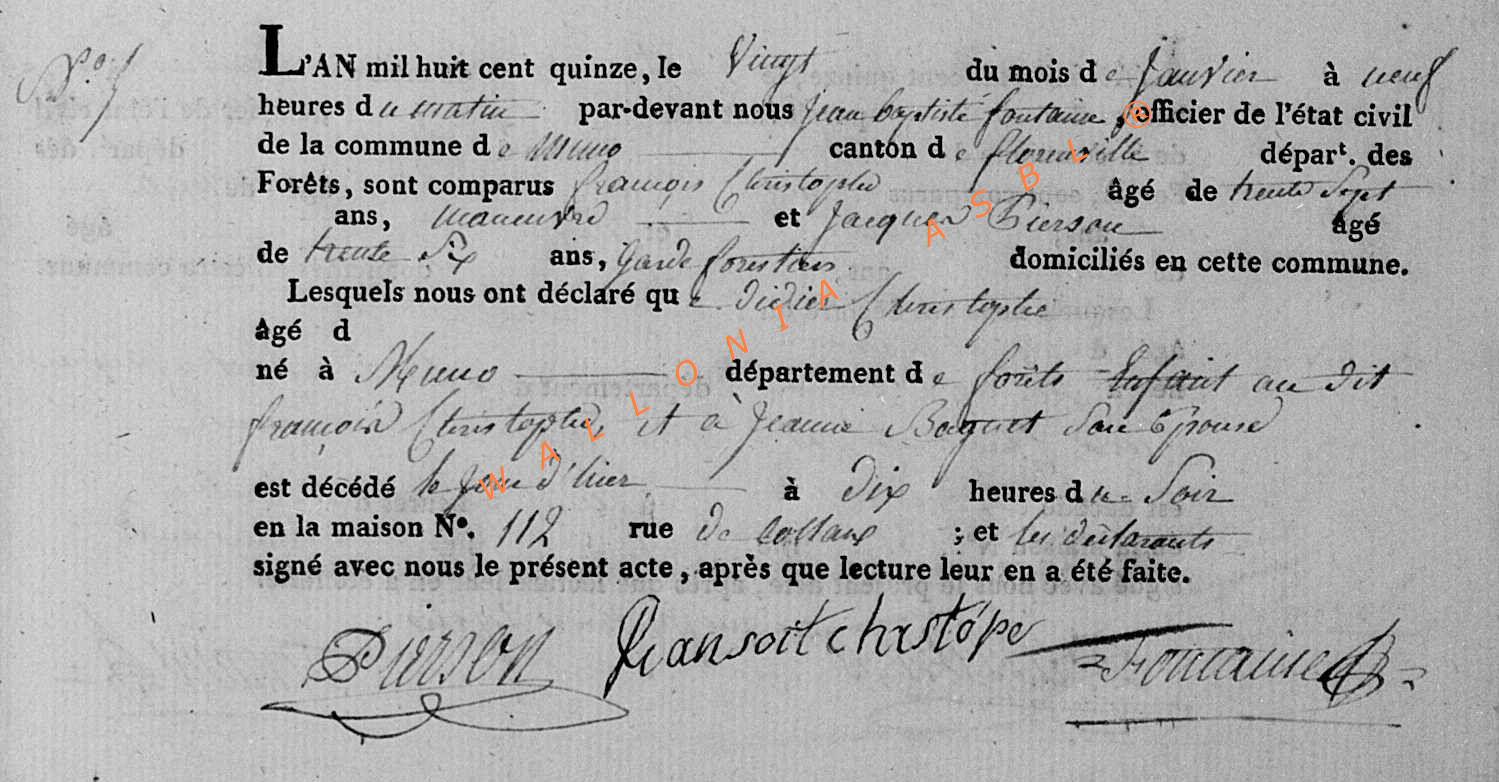 N.° 7
L'AN mil huit cent quinze, le Vingt du mois de Janvier à neuf
heures du matin par-devant nous Jean baptiste fontaine, officier de l'état civil
de la commune de Muno canton de florenville départ. des
Forêts, sont comparus françois Christophe âgé de trente Sept
ans, manœuvre et Jacques Pierson âgé
de trente Six ans, Garde forestiers domiciliés en cette commune.
Lesquels nous ont déclaré que didier Christophe
âgé d
né à Muno département de forêts Enfant au dit
françois Christophe, et à Jeanne Baquet Son Epouse
est décédé le jour d'hier à dix heures du Soir
en la maison N°. 112 rue de ; et les déclarants
signé avec nous le présent acte, après que lecture leur en a été faite.
Pierson fransoit christôpe Fontaine
WALLONIA ASBL ©